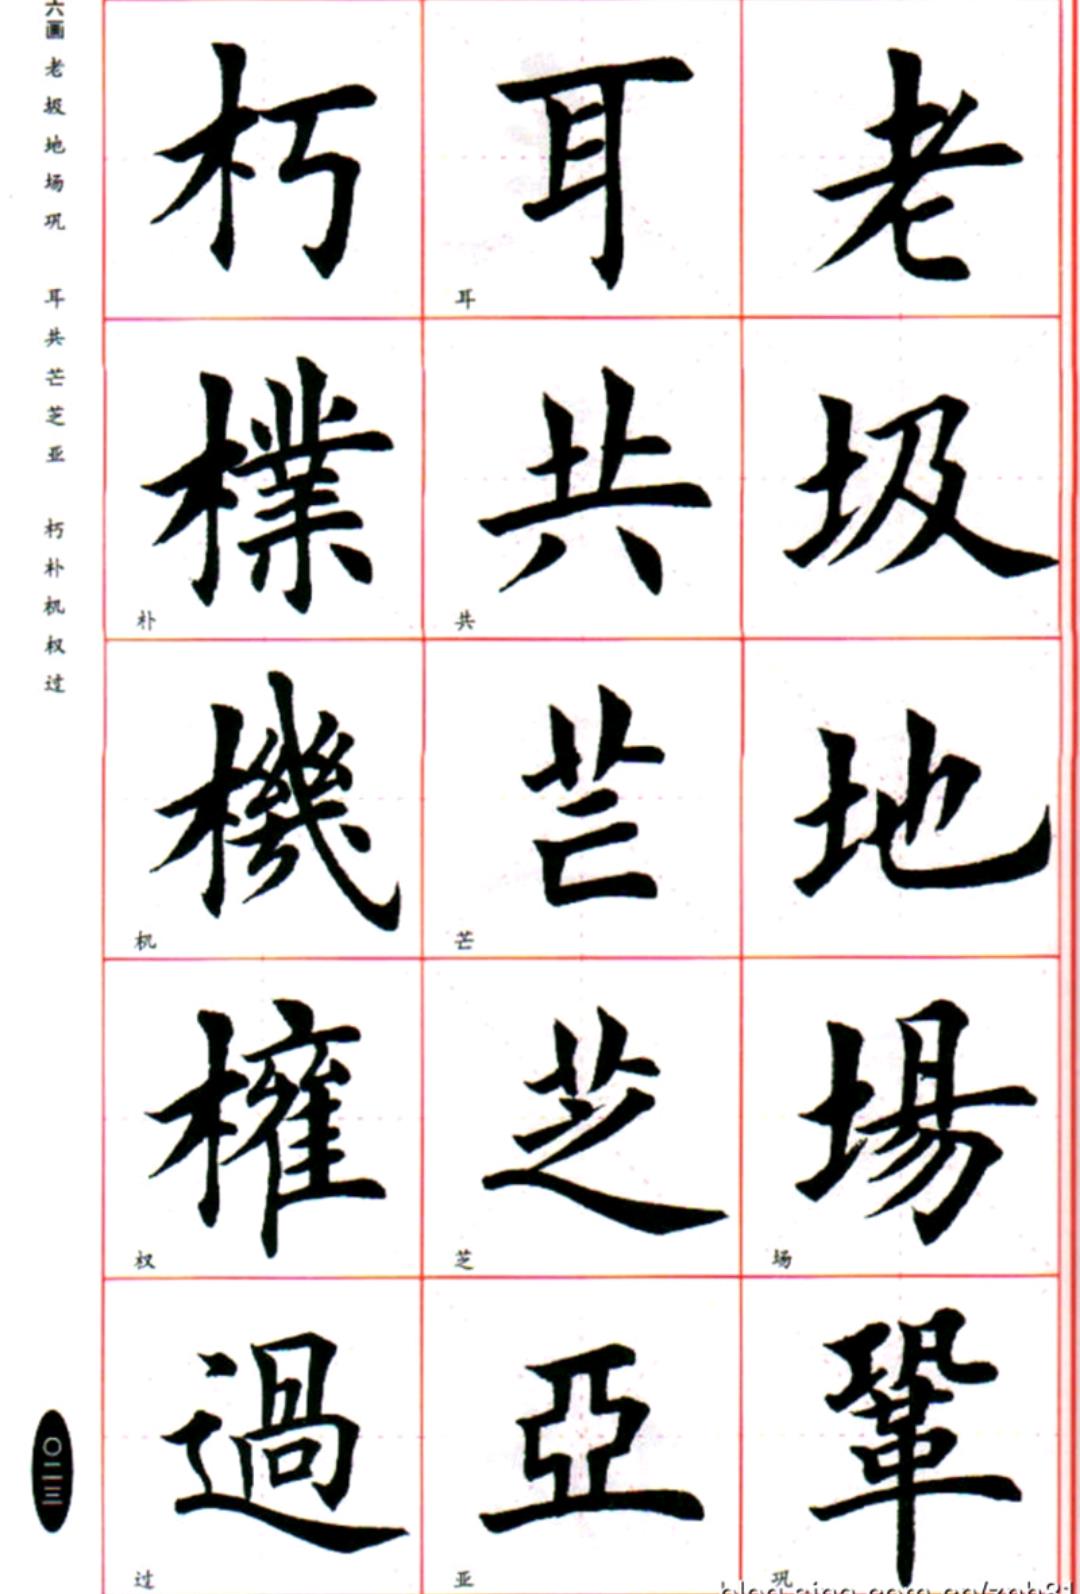 六画 老 圾 地 场 巩 耳 共 芒 芝 亚 朽 朴 机 权 过
老
圾
地
場
场
鞏
巩
耳
耳
共
共
芒
芒
芝
芝
亞
亚
朽
樸
朴
機
机
權
权
過
过
〇二三